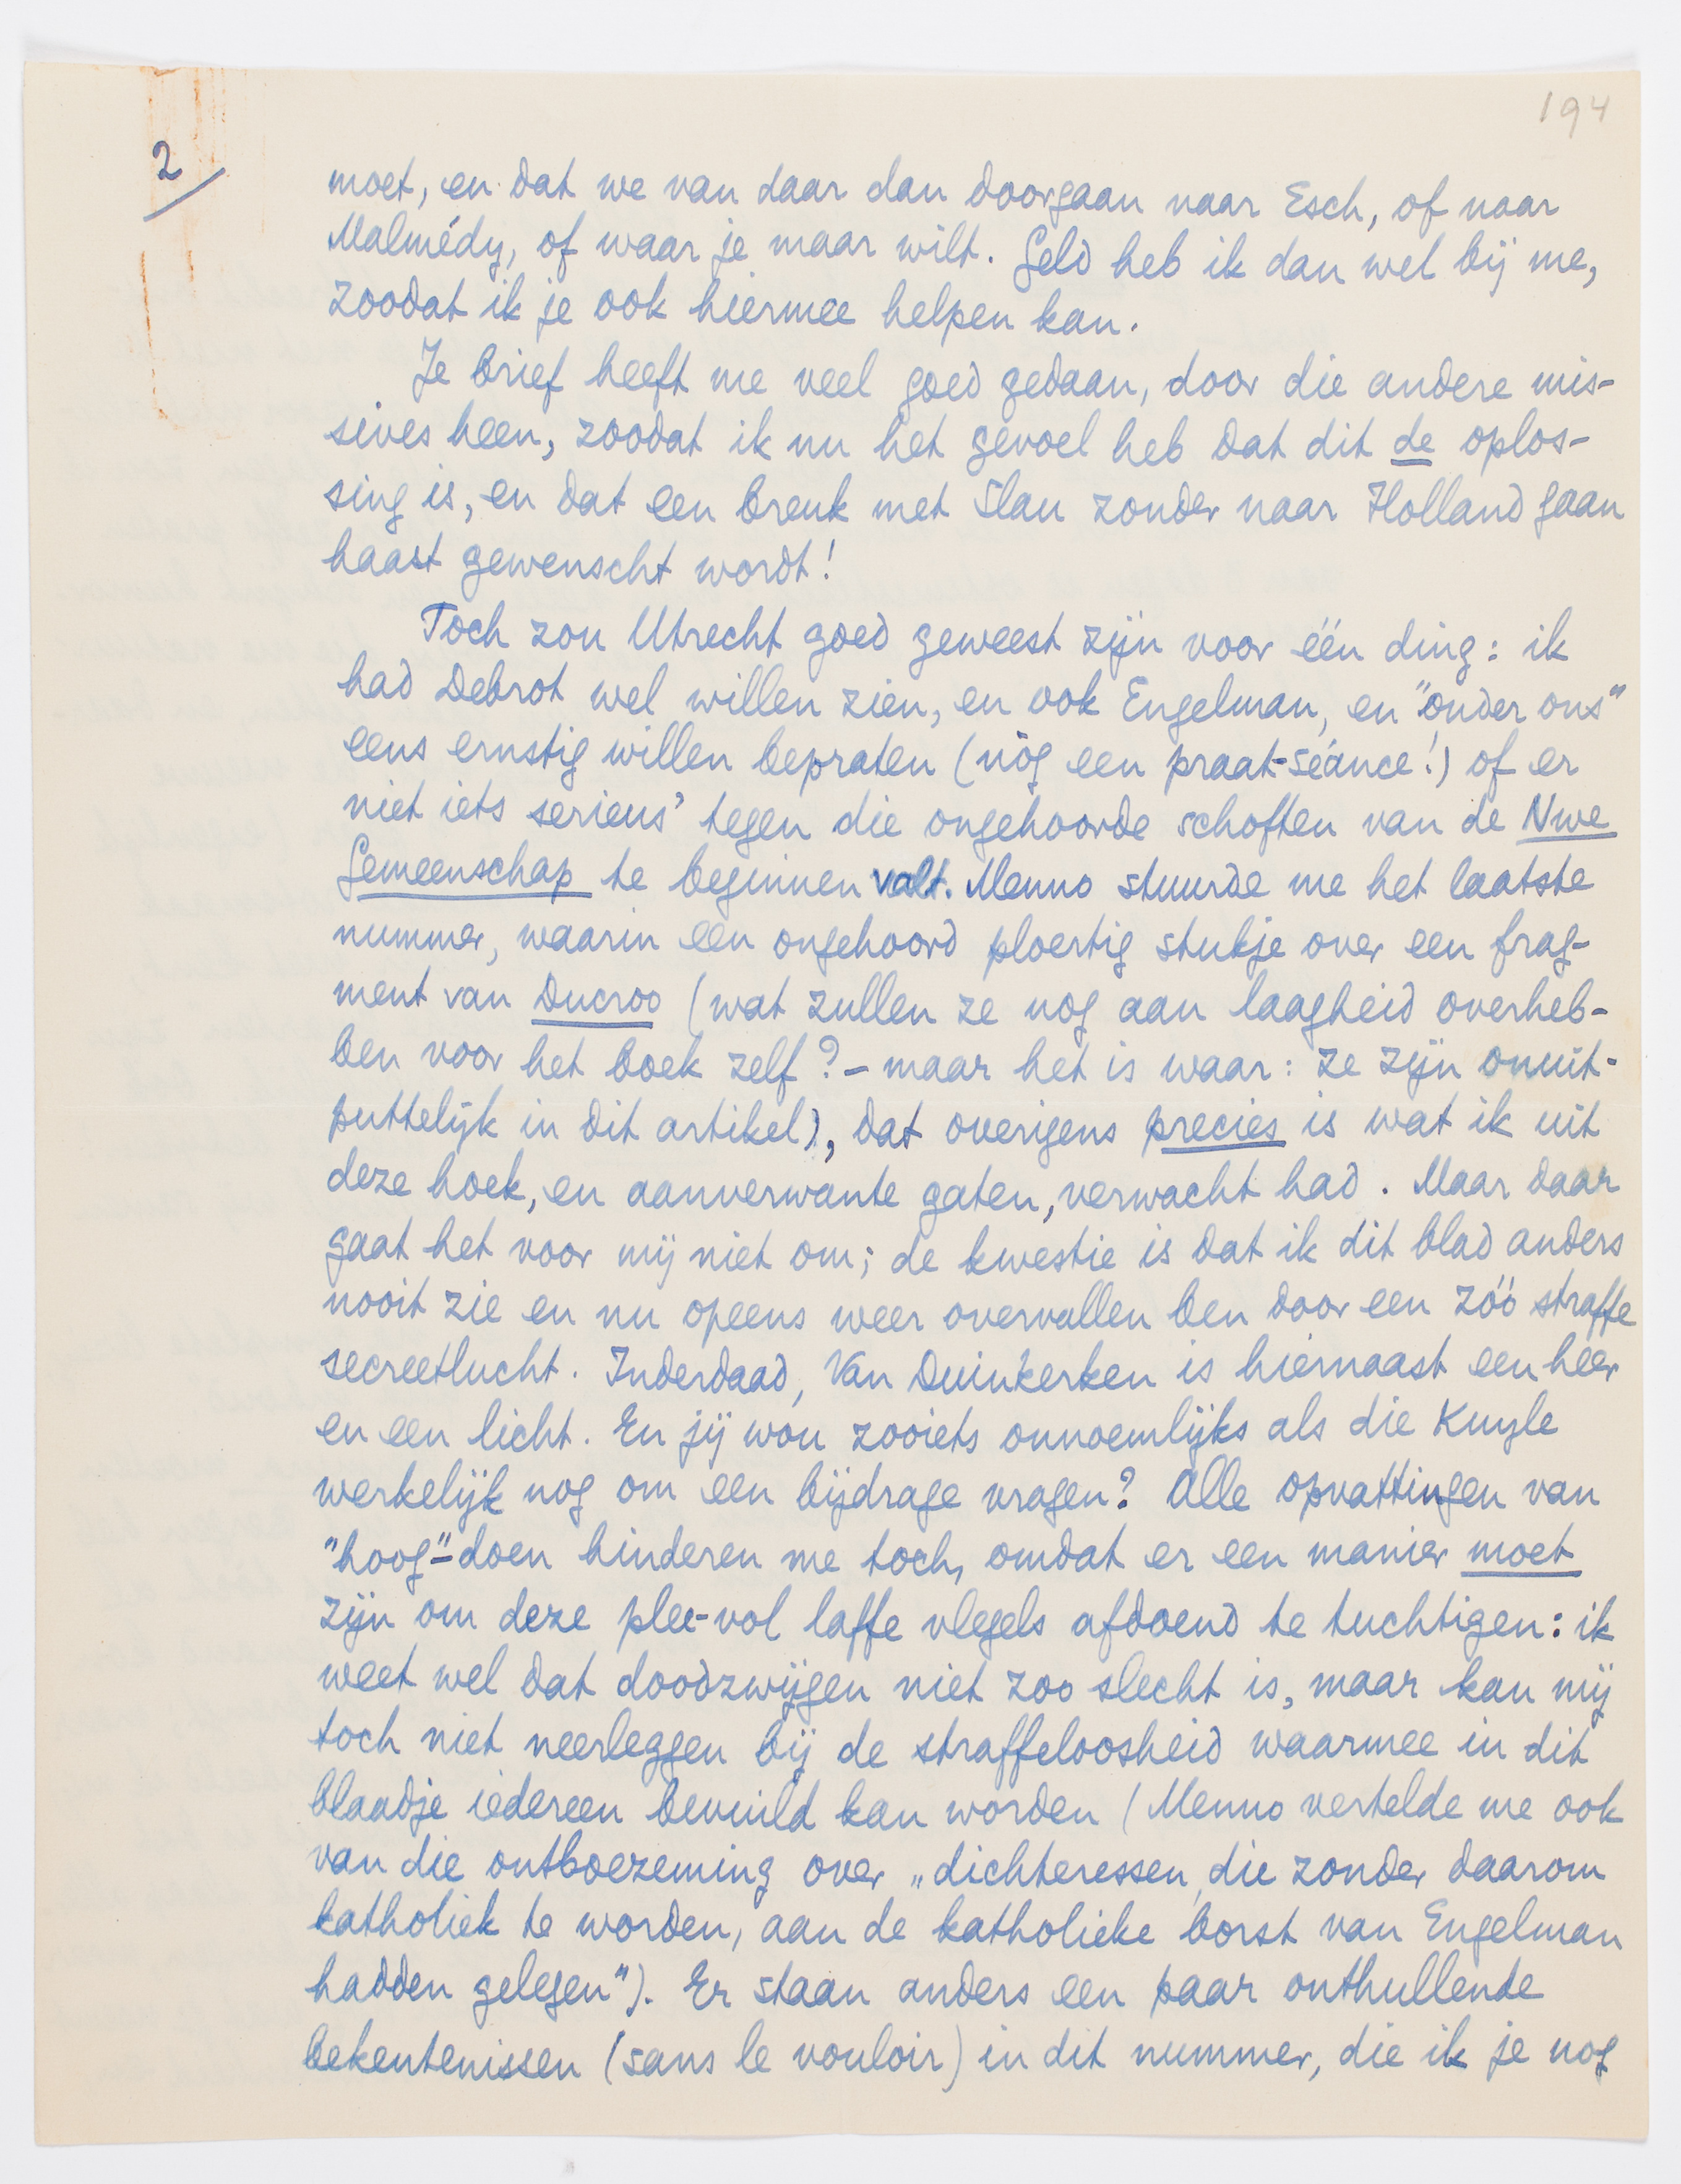 194
2/
moet, en dat we van daar dan doorgaan naar Esch, of naar
Malmédy, of waar je maar wilt. Geld heb ik dan wel bij me,
zoodat ik je ook hiermee helpen kan.
Je brief heeft me veel goed gedaan, door die andere mis-
sives heen, zoodat ik nu het gevoel heb dat dit de oplos-
sing is, en dat een breuk met Slau zonder naar Holland gaan
haast gewenscht wordt!
Toch zou Utrecht goed geweest zijn voor één ding: ik
had Debrot wel willen zien, en ook Engelman, en "onder ons"
eens ernstig willen bepraten (nòg een praat-séance!) of er
niet iets serieus' tegen die ongehoorde schoften van de Nwe
Gemeenschap te beginnen valt. Menno stuurde me het laatste
nummer, waarin een ongehoord ploertig stukje over een frag-
ment van Ducroo (wat zullen ze nog aan laagheid overheb-
ben voor het boek zelf? – maar het is waar: ze zijn onuit-
puttelijk in dit artikel), dat overigens precies is wat ik uit
deze hoek, en aanverwante gaten, verwacht had. Maar daar
gaat het voor mij niet om; de kwestie is dat ik dit blad anders
nooit zie en nu opeens weer overvallen ben door een zóó straffe
secreetlucht. Inderdaad, Van Duinkerken is hiernaast een heer
en een licht. En jij wou zooiets onnoemlijks als die Kuyle
werkelijk nog om een bijdrage vragen? Alle opvattingen van
"hoog"-doen hinderen me toch, omdat er een manier moet
zijn om deze plee-vol laffe vlegels afdoend te tuchtigen: ik
weet wel dat doodzwijgen niet zoo slecht is, maar kan mij
toch niet neerleggen bij de straffeloosheid waarmee in dit
blaadje iedereen bevuild kan worden (Menno vertelde me ook
van die ontboezeming over „dichteressen, die zonder daarom
katholiek te worden, aan de katholieke borst van Engelman
hadden gelegen"). Er staan anders een paar onthullende
bekentenissen (sans le vouloir) in dit nummer, die ik je nog